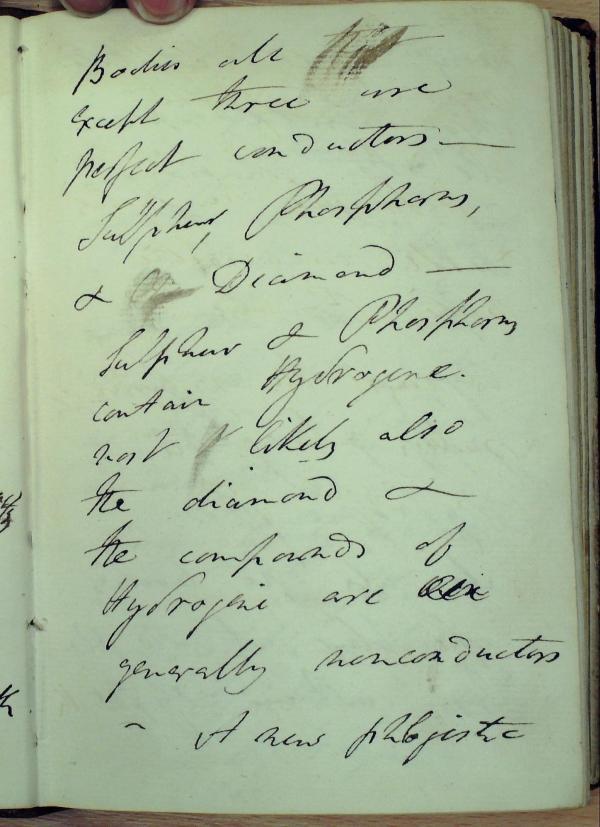 Bodies all
except three are
perfect conductors —
Sulphur, Phosphorus,
& Diamond —
Sulphur & Phosphorus
contain Hydrogene.
most likely also
the diamond &
the compounds of
Hydrogene are
generally nonconductors
- A new phlogistic